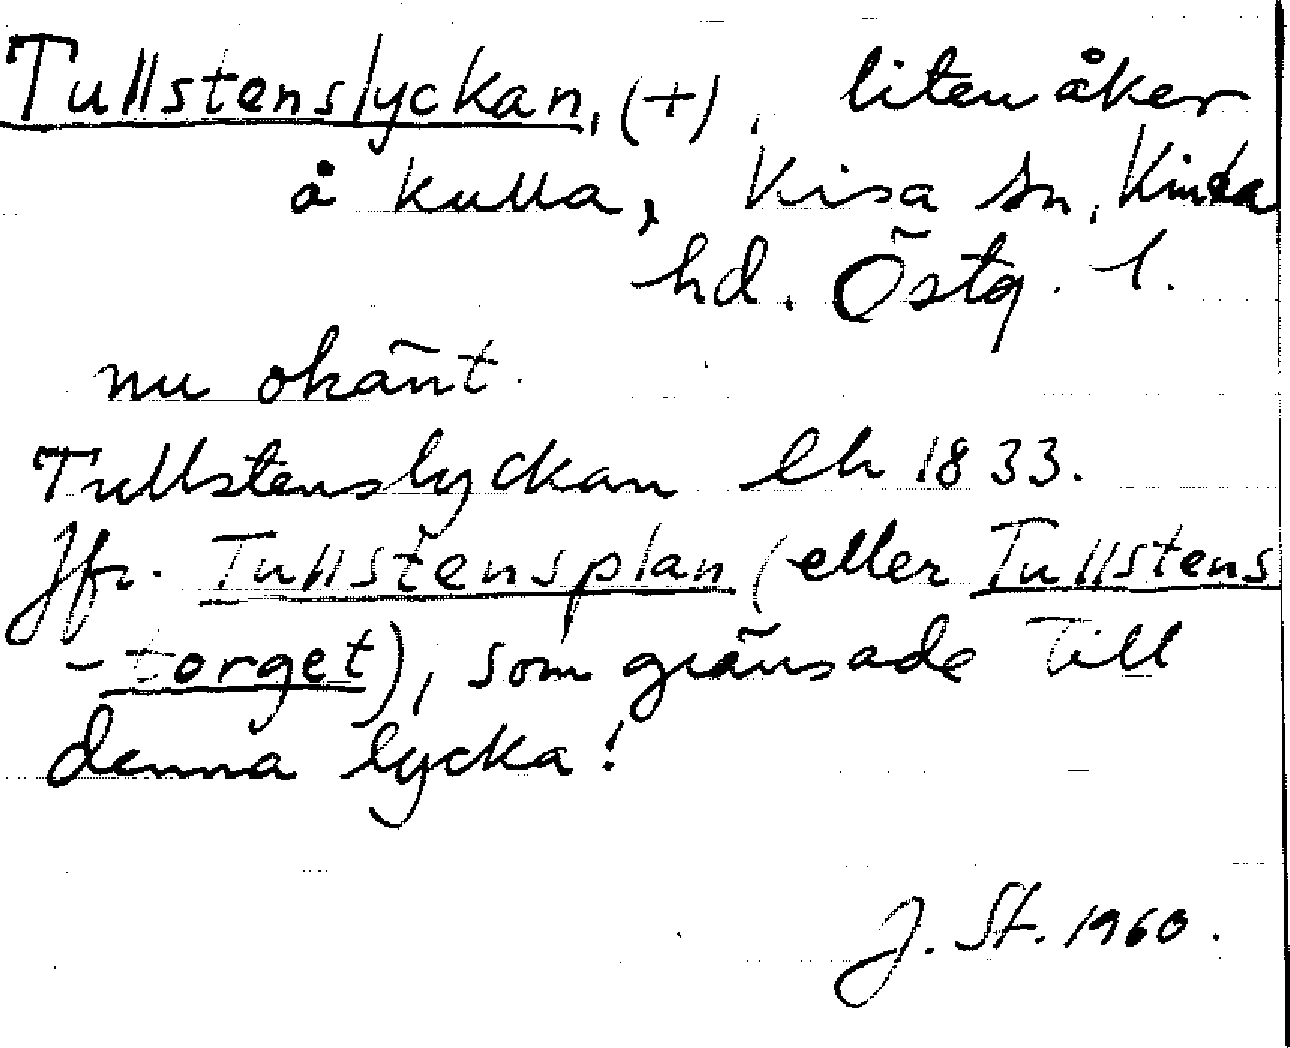 Tullstenslyckan, (+), liten åker
å kulla, Kisa sn, Kinda
hd. Östg. l.
nu okänt.
Tullstenslyckan lh 1833.
Jfr. Tullstensplan (eller Tullstens
-torget), som gränsade till
denna lycka!
J. St. 1960.